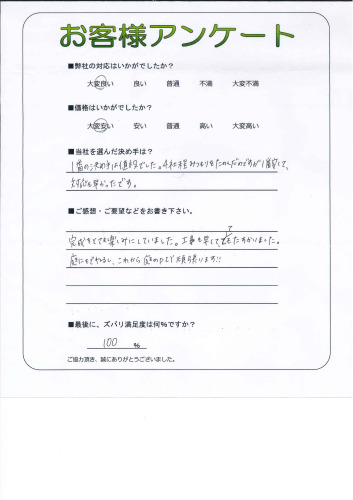 お客様アンケート
■弊社の対応はいかがでしたか？
大変良い 良い 普通 不満 大変不満
■価格はいかがでしたか？
大変安い 安い 普通 高い 大変高い
■当社を選んだ決め手は？
1番の決め手は値段でした。4社程みつもりをたのんだのですが1番安くて、
対応も早かったです。
■ご感想・ご要望などをお書き下さい。
完成をとても楽しみにしていました。工事も早くてとてもたすかりました。
庭にもでやすいし、これから庭のDIY頑張ります!!
■最後に、ズバリ満足度は何％ですか？
100 ％
ご協力頂き、誠にありがとうございました。